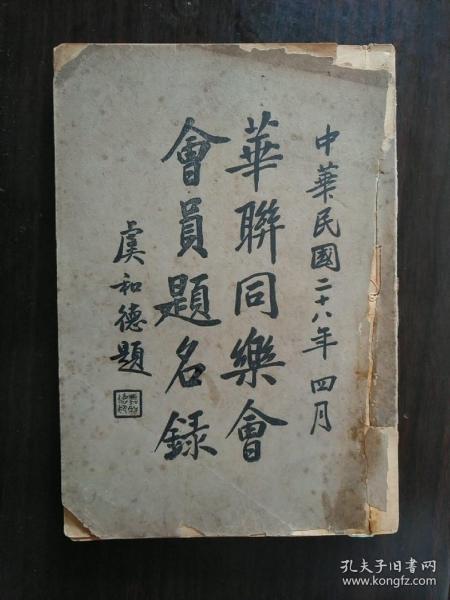 中華民國二十八年 四月
華聯同樂會
會員題名錄
虞和德題
孔夫子旧书网
www.kongfz.com